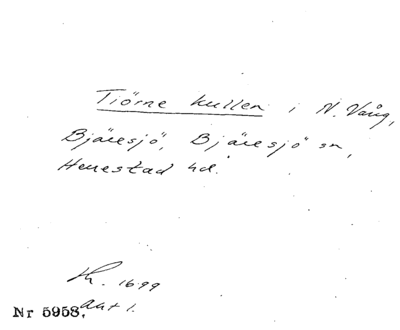 Tiörne kullen i N. Vång,
Bjäresjö, Bjäresjö sn,
Herrestad hd.
1699
Akt 1.
Nr 5958.